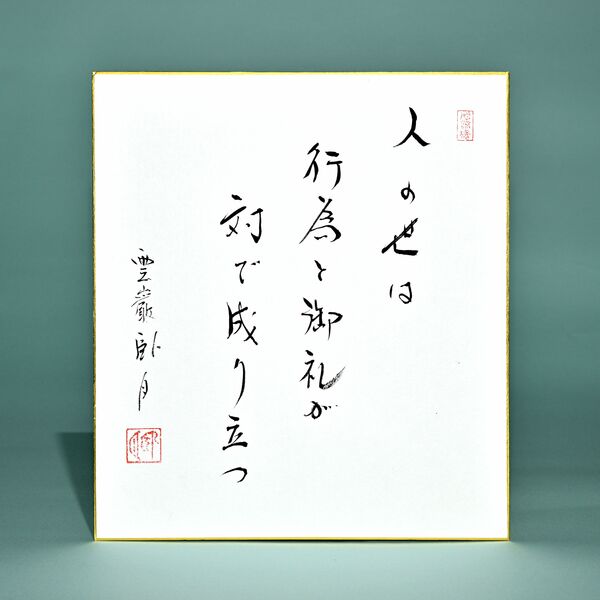 人の世は
行為と御礼が
対で成り立つ
雲巌臥月